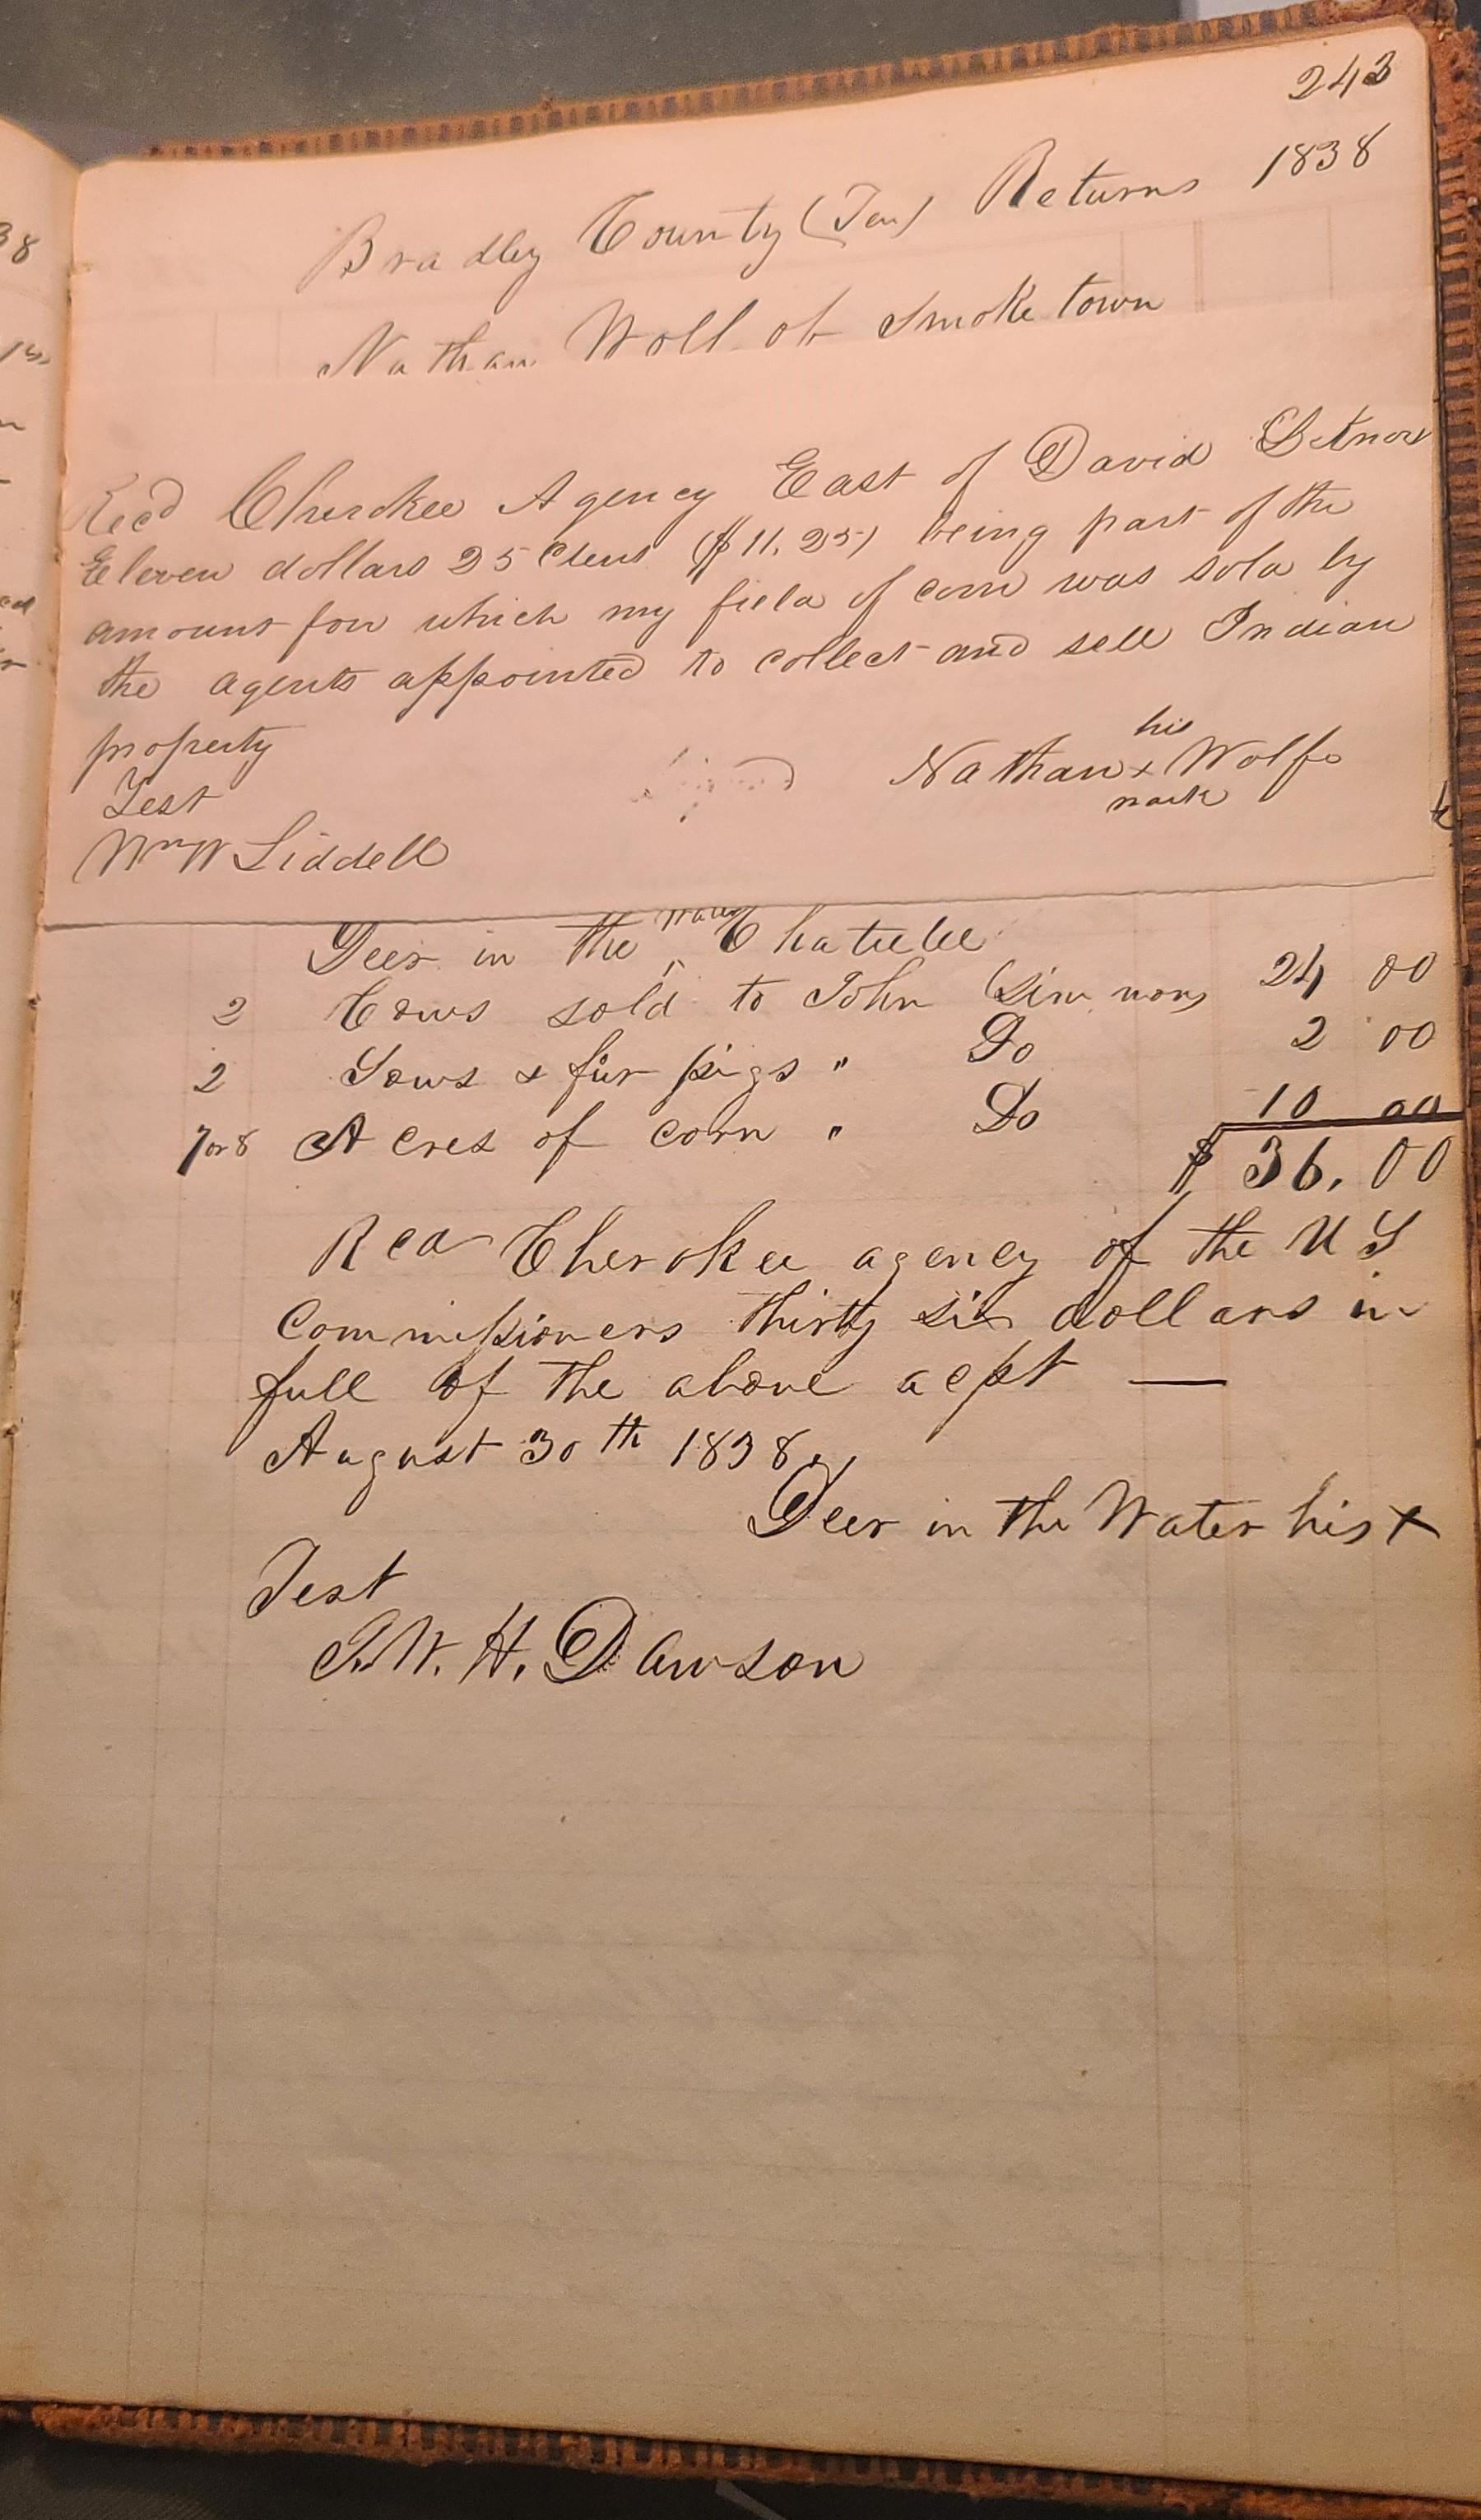 243
Bradley County (Ten) Returns 1838
Nathan Wolf of Smoke town
Recd Cherokee Agency East of David
Eleven dollars 25 Cents ($11.25) being part of the
amount for which my field of corn was sold by
the agents appointed to collect and sell Indian
property
his
Nathan x Wolfe
mark
Test
Wm W Liddell
Deer in the Water
2 Cows sold to John 24 00
2 Sows & five pigs " Do 2 00
7 or 8 Acres of corn " Do 10 00
$ 36.00
Recd Cherokee agency of the U S
Commissioners thirty six dollars in
full of the above acpt —
August 30th 1838
Deer in the Water his x
Test
W. H. Dawson